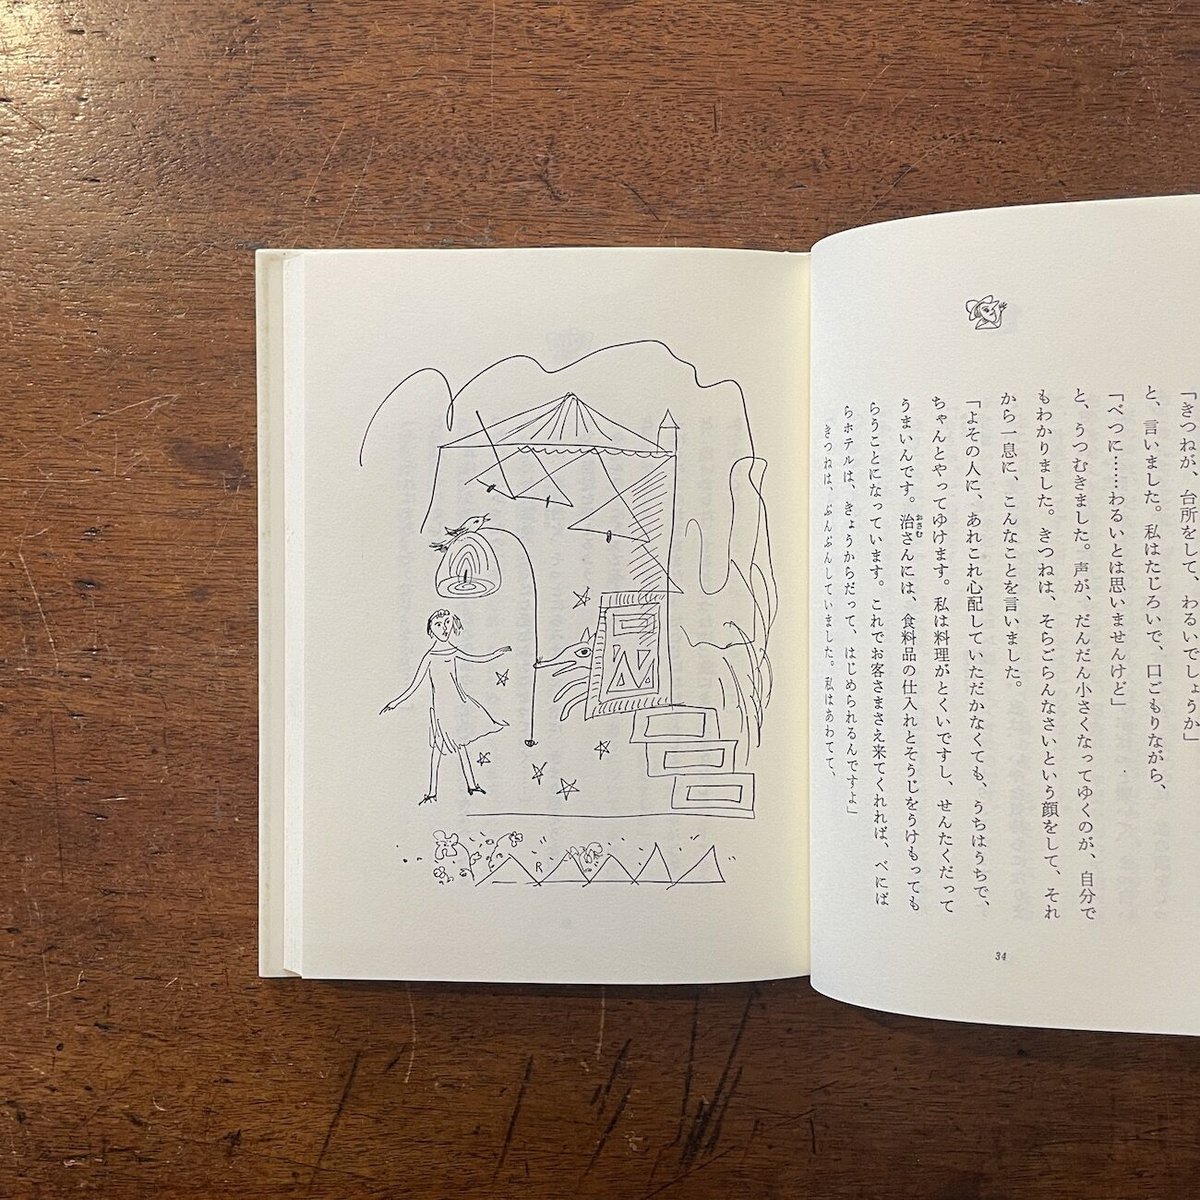 「きつねが、台所をして、わるいでしょうか」
と、言いました。私はたじろいで、口ごもりながら、
「べつに……わるいとは思いませんけど」
と、うつむきました。声が、だんだん小さくなってゆくのが、自分で
もわかりました。きつねは、そらごらんなさいという顔をして、それ
から一息に、こんなことを言いました。
「よその人に、あれこれ心配していただかなくても、うちはうちで、
ちゃんとやってゆけます。私は料理がとくいですし、せんたくだって
うまいんです。治さんには、食料品の仕入れとそうじをうけもっても
おさむ
らうことになっています。これでお客さまさえ来てくれれば、べにば
らホテルは、きょうからだって、はじめられるんですよ」
きつねは、ぷんぷんしていました。私はあわてて、
34
R